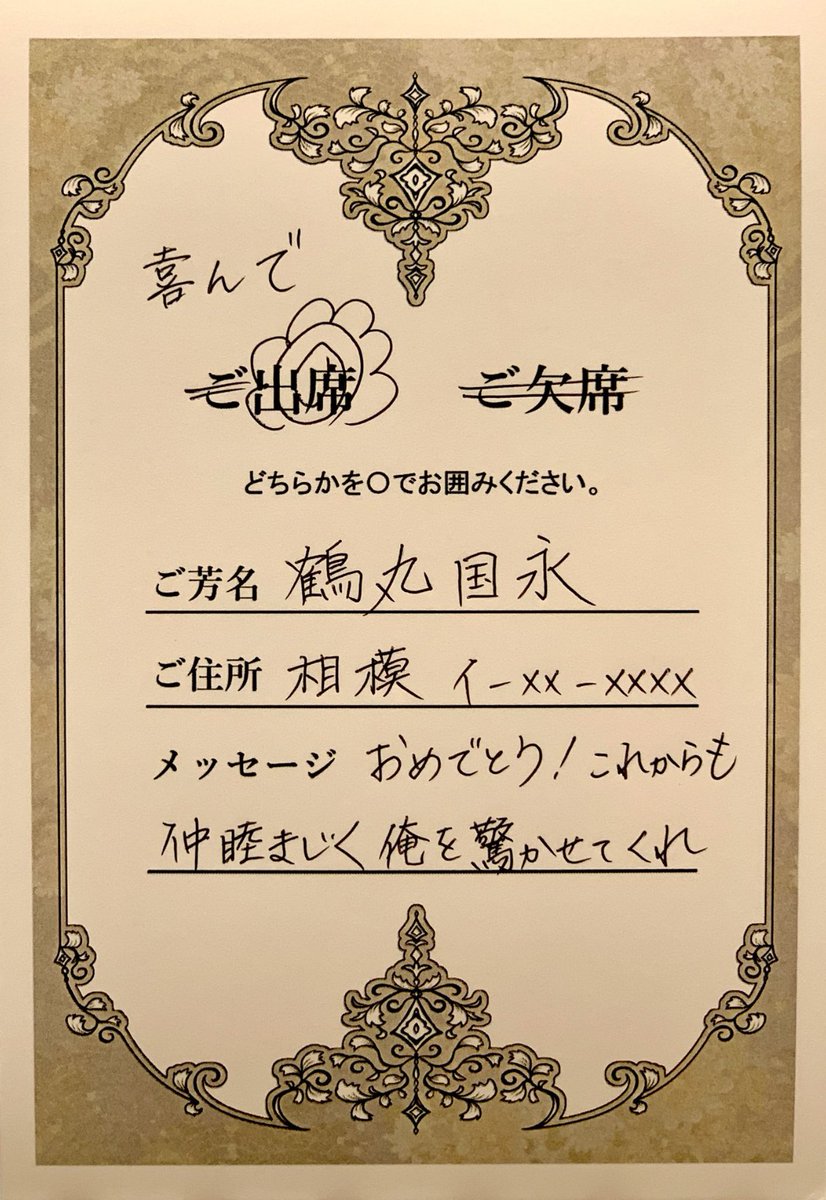 喜んで
ご出席 ご欠席
どちらかを〇でお囲みください。
ご芳名 鶴丸国永
ご住所 相模 イ-xx-xxxx
メッセージ おめでとう！これからも
仲睦まじく俺を驚かせてくれ